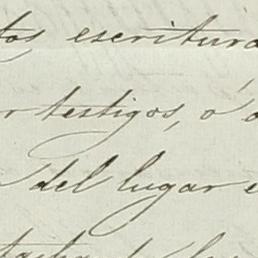 tos escritura
r testigos, o
del lugar